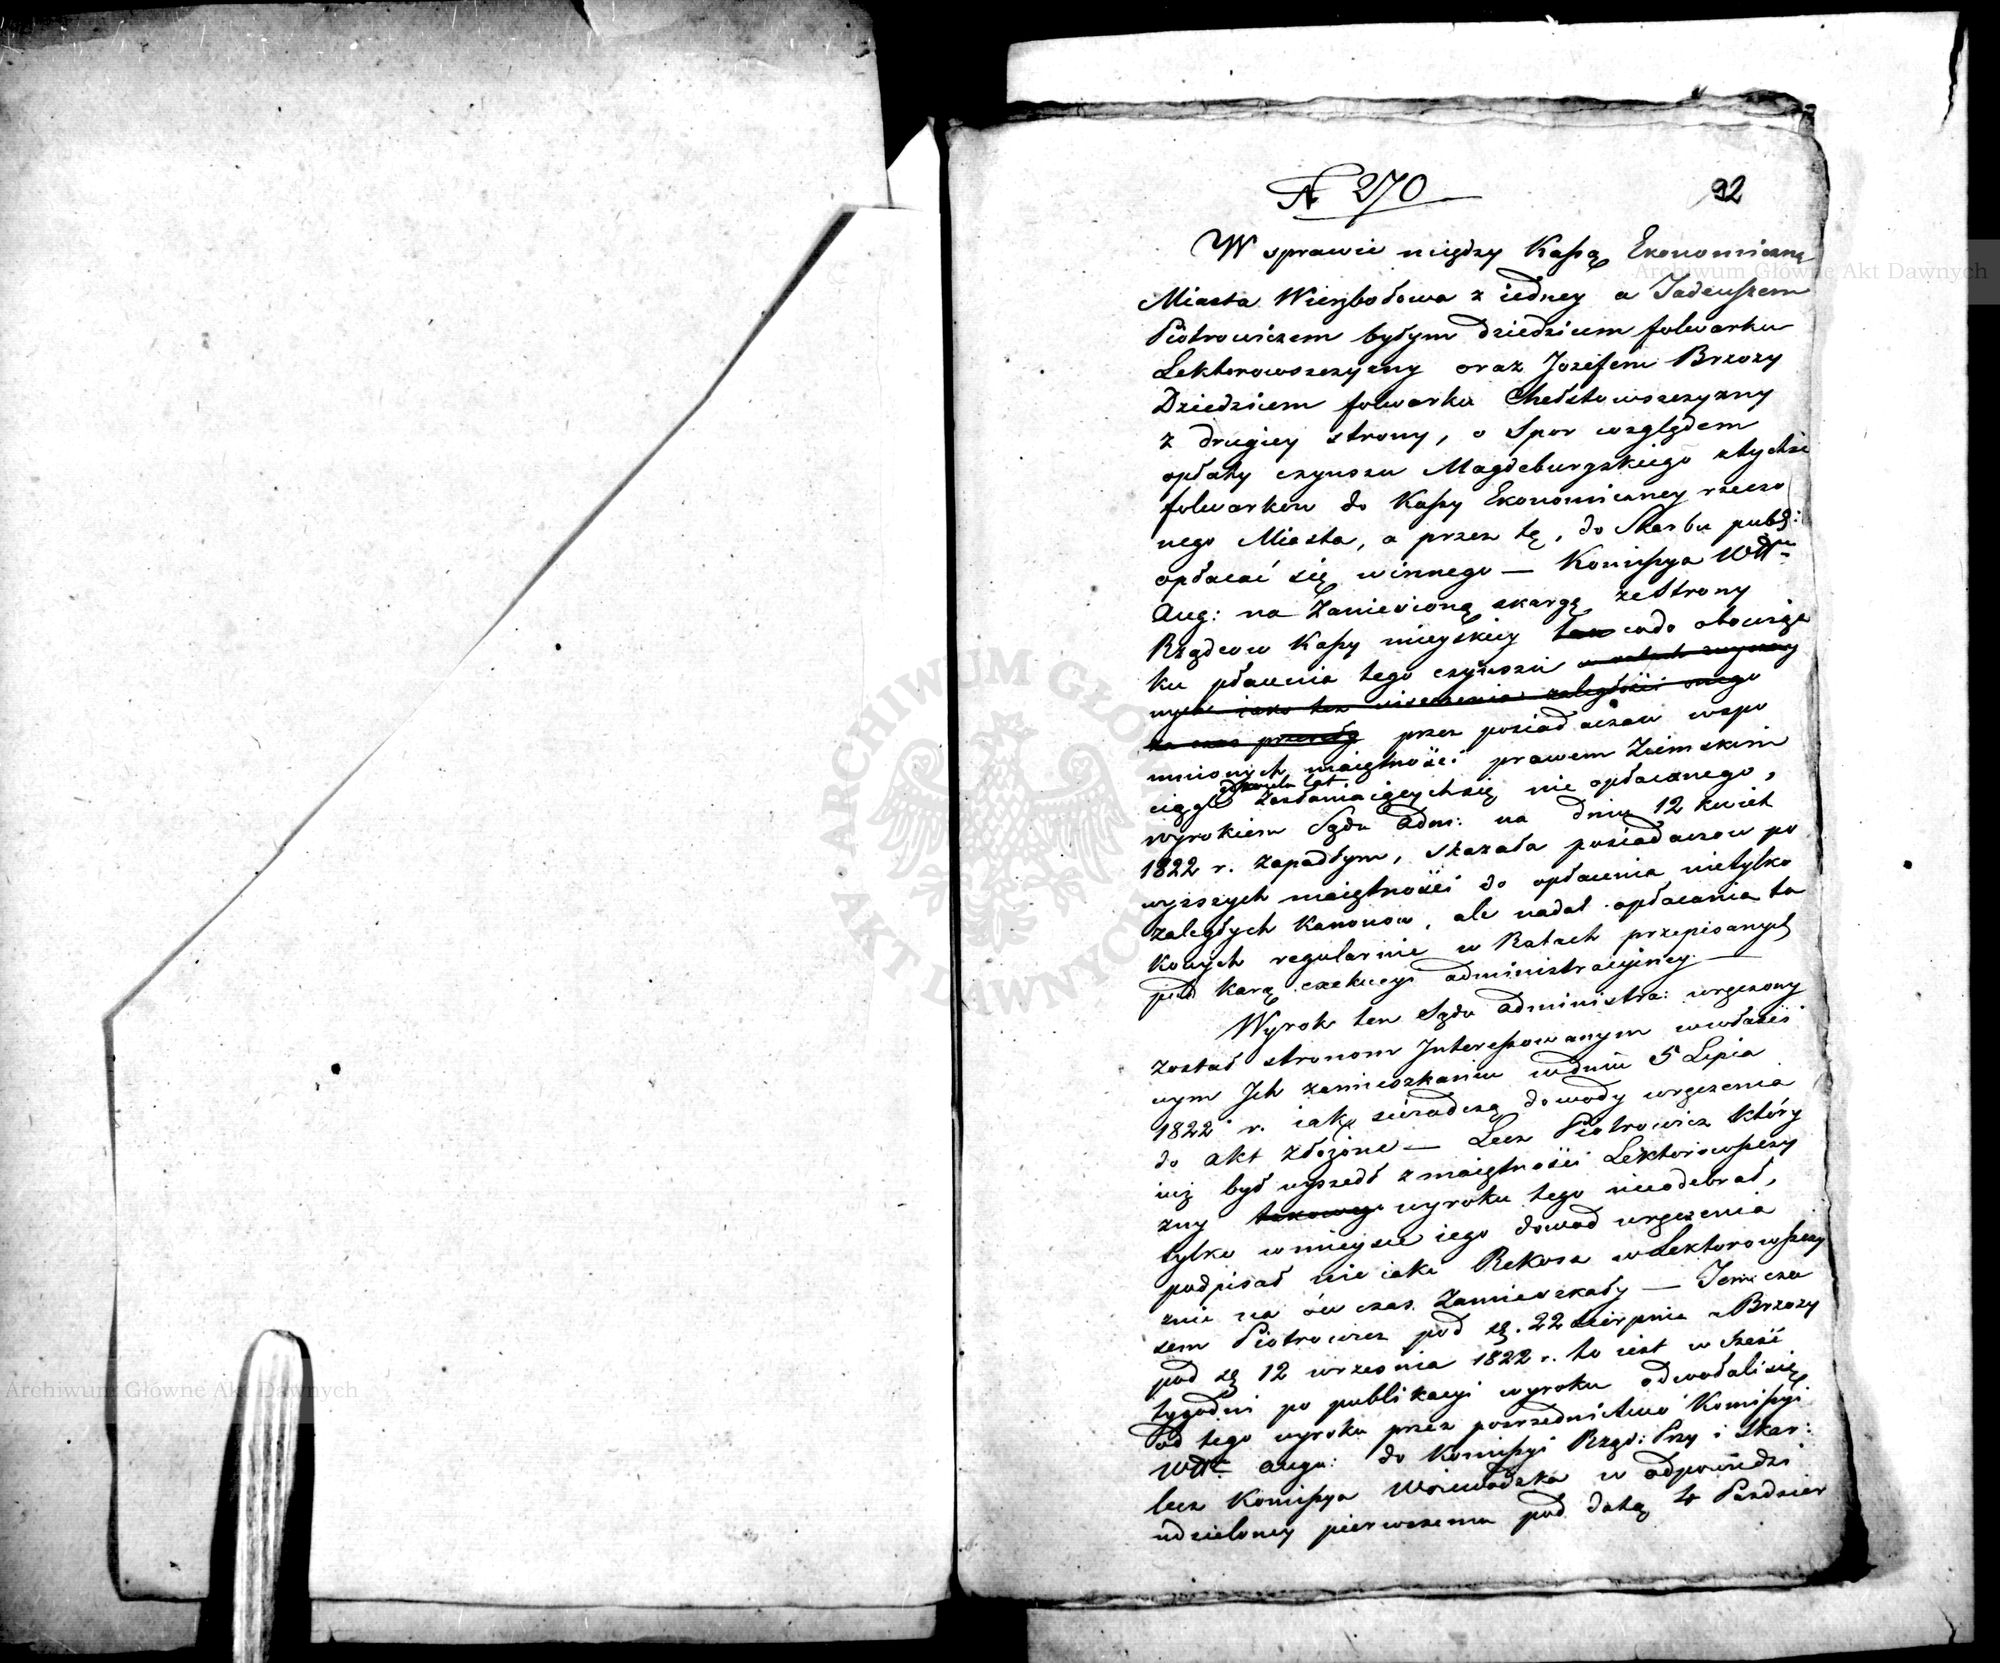 N 270
92
W sprawie między Kassą Ekonomiczną
Miasta Wierzbołowa z iedney a Tadeuszem
Piotrowiczem byłym dziedzicem folwarku
Lektorowszczyzny oraz Jozefem Brzozy
Dziedzicem folwarku Chełstowszczyzny
z drugiey strony, o Spor względem
opłaty czynszu Magdeburgskiego z tychże
folwarków do Kassy Ekonomiczney rzeczo
nego Miasta, a przez tę, do Skarbu publ:
opłacać się winnego — Kommissya Wdtwa
Aug: na Zaniesioną skargę ze Strony
Rządców Kassy mieyskiey tak co do obowiąz
ku płacenia tego czynszu w ratach
nych iako też uiszczenia zaległości onego
za czas przeszły przez posiadaczów wspo
mnionych maiętności prawem Ziemskim
od wielu lat
ciągle Zasłaniaiących się nie opłacanego,
wyrokiem Sądu Adm: na dniu 12 Kwiet
1822 r. zapadłym, skazała posiadaczow po
wyższych maiętności do opłacenia nietylko
zaległych Kanonow, ale nadal opłacania ta
kowych regularnie w Ratach przepisanych
pod karą exekucyi administracyiney. —
Wyrok ten Sądu Administra: wręczony
został stronom Interessowanym w właści
wym Ich zamieszkaniu w dniu 5 Lipca
1822 r. iak świadczą dowody wręczenia
do akt złożone — Lecz Piotrowicz który
iuż był wyszedł z maiętności Lektorowszczy
zny takowego wyroku tego nieodebrał,
tylko w mieysce iego dowod wręczenia
podpisał nieiaki Rekosz w Lektorowszczy
znie na ów czas Zamieszkały — Tem cza
sem Piotrowicz pod d. 22 Sierpnia a Brzozy
pod d. 12 września 1822 r. to iest w sześć
tygodni po publikacyi wyroku odwołali się
od tego wyroku przez pośrednictwo Komissyi
Wdtwa Augu: do Komissyi Rząd: Przy i Skar:
lecz Komissya Woiewodzka w odpowiedzi
udzieloney pierwszemu pod datą 4 Pazdzier
Archiwum Główne Akt Dawnych
Archiwum Główne Akt Dawnych
ARCHIWUM GŁÓWNE AKT DAWNYCH